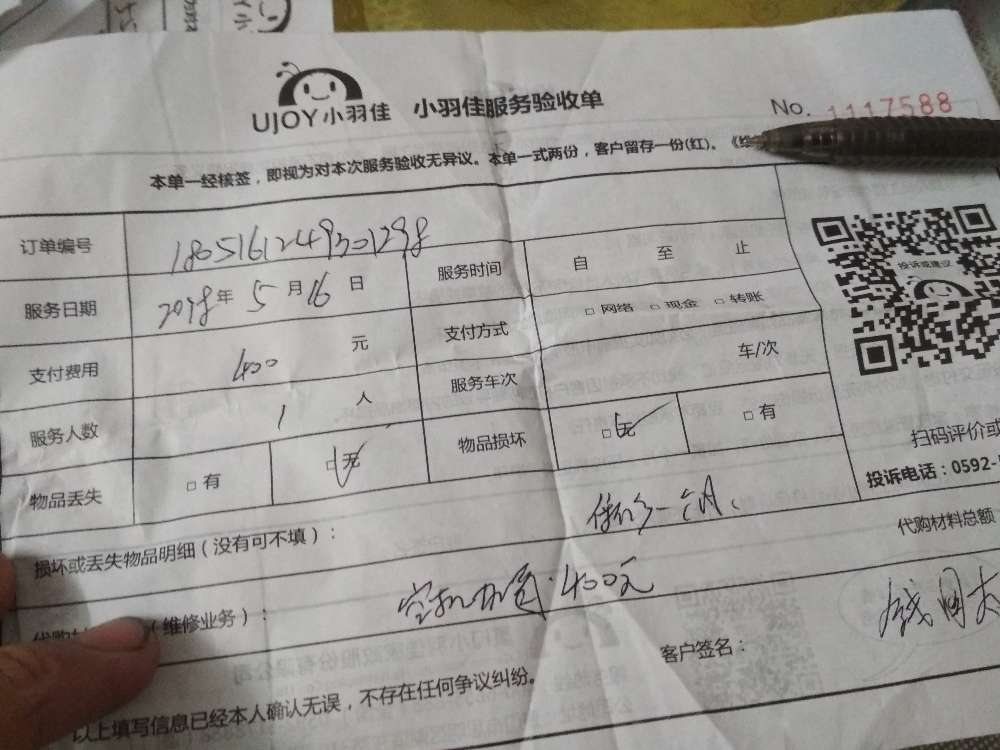 UJOY小羽佳 小羽佳服务验收单
No. 1117588
本单一经核签，即视为对本次服务验收无异议。本单一式两份，客户留存一份(红)。
订单编号 1805161249301298
服务时间 自 至 止
服务日期 2018年 5月 16日
支付方式 □ 网络 □ 现金 □ 转账
支付费用 400 元
服务车次 车/次
服务人数 1 人
物品损坏 □无 □有
物品丢失 □有 □无
投诉或建议
扫码评价或
投诉电话：0592-
损坏或丢失物品明细（没有可不填）：
保修一个月、
代购材料总额
（维修业务）：
空机加氟·400元
客户签名：
以上填写信息已经本人确认无误，不存在任何争议纠纷。